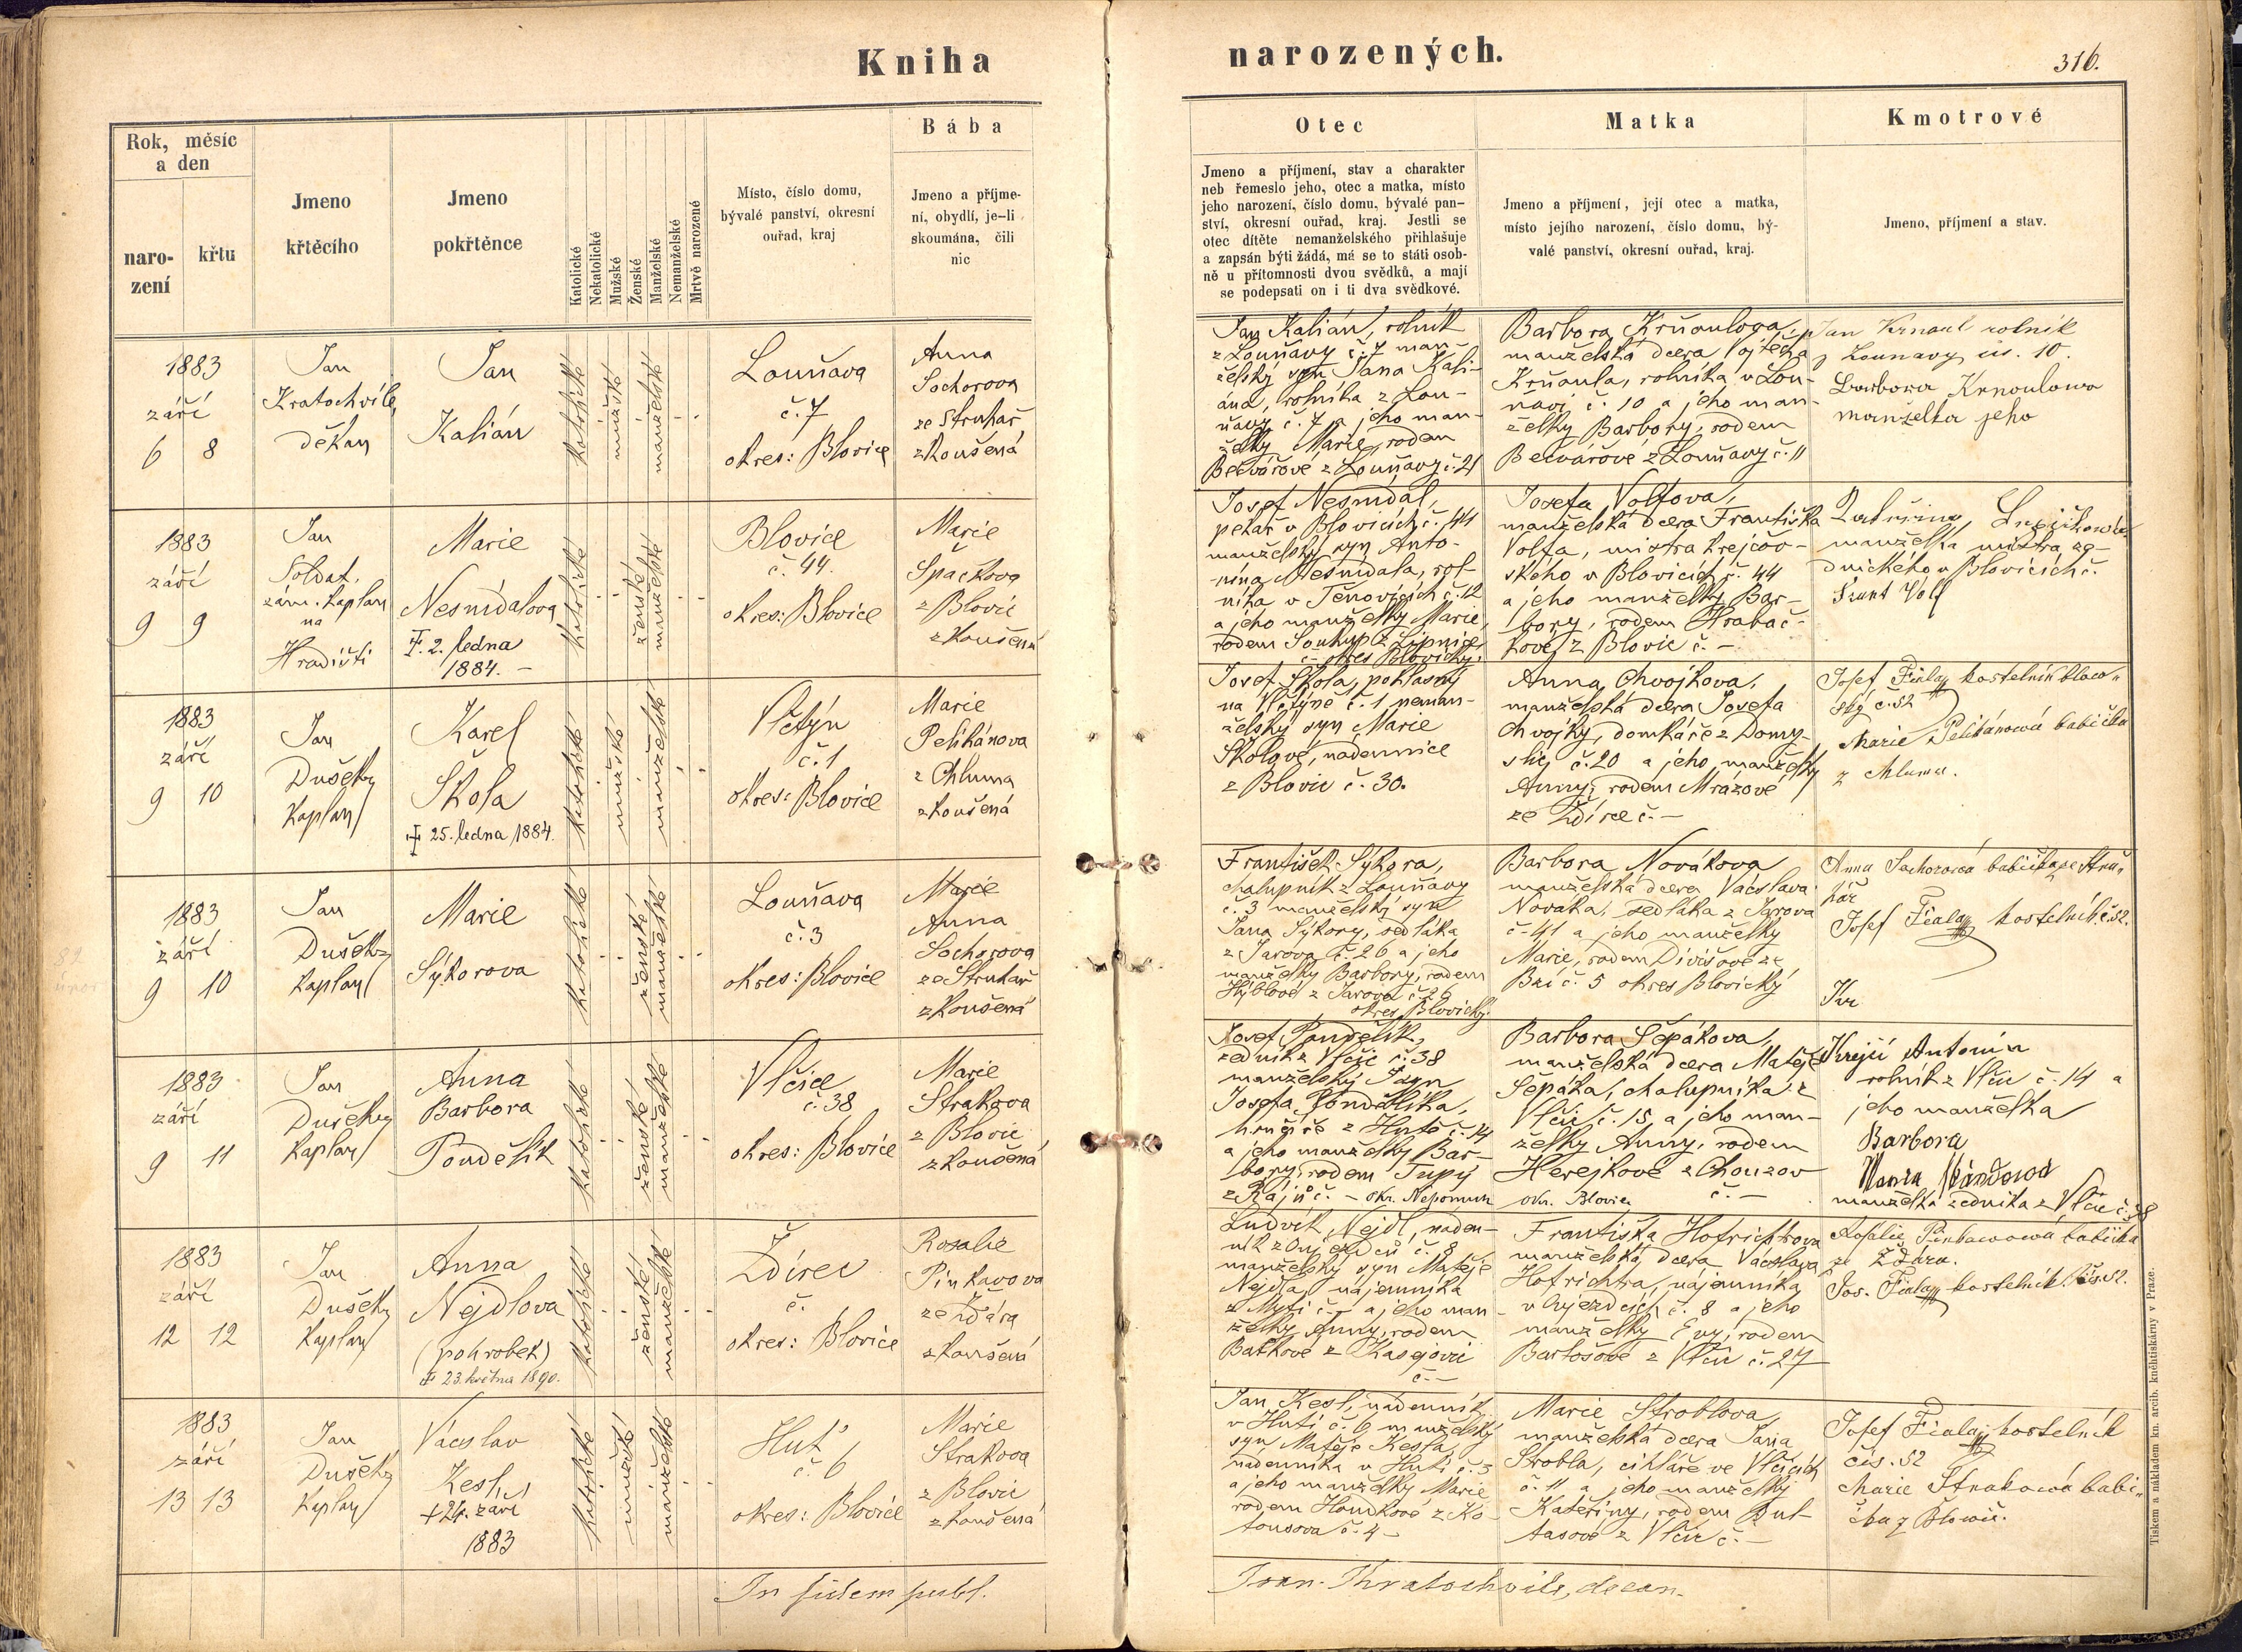 Kniha
narozených.
316.
Rok, měsíc
a den
naro-
zení
křtu
Jmeno
křtěcího
Jmeno
pokřtěnce
Katolické
Nekatolické
Mužské
Ženské
Manželské
Nemanželské
Mrtvě narozené
Místo, číslo domu,
bývalé panství, okresní
ouřad, kraj
Bába
Jmeno a příjme-
ní, obydlí, je-li
skoumána, čili
nic
Otec
Jmeno a příjmení, stav a charakter
neb řemeslo jeho, otec a matka, místo
jeho narození, číslo domu, bývalé pan-
ství, okresní ouřad, kraj. Jestli se
otec dítěte nemanželského přihlašuje
a zapsán býti žádá, má se to státi osob-
ně u přítomnosti dvou svědků, a mají
se podepsati on i ti dva svědkové.
Matka
Jmeno a příjmení, její otec a matka,
místo jejího narození, číslo domu, bý-
valé panství, okresní ouřad, kraj.
Kmotrové
Jmeno, příjmení a stav.
1883
září
6 8
Jan
Kratochvíle,
děkan
Jan
Kalián
katolické
mužské
manželské
Louňava
č. 7
okres: Blovice
Anna
Sochorova
ze Struhař
zkoušená
Jan Kalián, rolník
z Louňavy č. 7 man-
želský syn Jana Kali-
ána, rolníka z Lou-
ňavy č. 7 a jeho man-
želky Marie, rodem
Bečvářové z Louňavy č. 21
Barbora Krňoulova,
manželská dcera Vojtěcha
Krňoula, rolníka v Lou-
ňavě č. 10 a jeho man-
želky Barbory, rodem
Bečvářové z Louňavy č. 11
Jan Krnoul rolník
z Lounavy čís. 10.
Barbora Krnoulowa
manželka jeho
1883
září
9 9
Jan
Soldat,
zám. kaplan
na
Hradišti
Marie
Nesnídalova
†. 2. ledna
1884. –
katolické
ženské
manželské
Blovice
č. 44.
okres: Blovice
Marie
Špačkova
z Blovic
zkoušená
Josef Nesnídal,
pekař v Blovicích č. 44
manželský syn Anto-
nína Nesnídala, rol-
níka v Ženovicích č. 12
a jeho manželky Marie,
rodem Soukup z Lipnice
č – okres Blovický.
Josefa Volfova,
manželská dcera Františka
Volfa, mistra krejčov-
ského v Blovicích č. 44
a jeho manželky Bar-
bory, rodem Hrabač-
kové z Blovic č. –
manželka mistra ze-
dnického v Blovicích č.
1883
září
9 10
Jan
Dušek
kaplan
Karel
Škola
† 25. ledna 1884.
katolické
mužské
manželské
Vlčtýn
č. 1
okres: Blovice
Marie
Pelikánova
z Chluma
zkoušená
Josef Škola, pohlasný
na Vlčtýně č. 1 neman-
želský syn Marie
Školové, nádennice
z Blovic č. 30.
Anna Chvojkova,
manželská dcera Josefa
Chvojky, domkáře z Domy-
slic č. 20 a jeho manželky
Anny, rodem Mrázové
ze Ždírce č. –
Josef Fiala kostelník blow-
ský č. 52
Marie Pelikánowá babička
z Chluma.
1883
září
9 10
Jan
Dušek
kaplan
Marie
Sýkorova
katolické
ženské
manželské
Louňava
č. 3
okres: Blovice
Marie
Anna
Sochorova
ze Struhař
zkoušená
František Sýkora,
chalupník z Louňavy
č. 3 manželský syn
Jana Sýkory, sedláka
z Jarova č. 26 a jeho
manželky Barbory, rodem
Hýblové z Jarova č. 26
okres Blovický.
Barbora Novákova
manželská dcera Václava
Nováka, sedláka z Jarova
č. 41 a jeho manželky
Marie, rodem Divišové ze
Bzí č. 5 okres Blovický
Anna Sochorowá babička ze Stru-
hář
Josef Fiala kostelník č. 52.
1883
září
9 11
Jan
Dušek
kaplan
Anna
Barbora
Pondělík
katolické
ženské
manželské
Vlčice
č. 38
okres: Blovice
Marie
Strakova
z Blovic
zkoušená
Josef Pondělík,
zedník z Vlčic č. 38
manželský syn
Josefa Pondělíka,
hrnčíře z Hutě č. 14
a jeho manželky Bar-
bory, rodem Tupý
z Rájů č. – okr. Nepomuk
Barbora Sepákova,
manželská dcera Matěje
Sepáka, chalupníka z
Vlčic č. 15 a jeho man-
želky Anny, rodem
Herejkové z Chouzov
okr. Blovice č. –
Krejčí Antonín
rolník z Vlčic č. 14 a
jeho manželka
Barbora
manželka zedníka z Vlčic č. 38
1883
září
12 12
Jan
Dušek
kaplan
Anna
Nejdlova
(pohrobek)
† 23. května 1890.
katolické
ženské
manželské
Ždírec
č.
okres: Blovice
Rosalie
Pinkavova
ze Žďára
zkoušená
Ludvík Nejdl, náden-
ník z Oujezdců č. 8
manželský syn Matěje
Nejdla, nájemníka
z Mytí č – a jeho man-
želky Anny, rodem
Baťkové z Kasejovic
č –
Františka Hofrichtrova
manželská dcera Václava
Hofrichtra, nájemníka
v Oujezdcích č. 8 a jeho
manželky Evy, rodem
Bartošové z Vlčic č. 27
Rosalie Pinkawowá babička
ze Žďáru.
Jos. Fiala kostelník čís. 52.
1883
září
13 13
Jan
Dušek
kaplan
Václav
Kesl
† 24. září
1883
katolické
mužské
manželské
Huť
č. 6
okres: Blovice
Marie
Strakova
z Blovic
zkoušená
Jan Kesl, nádenník
v Huti č. 6 manželský
syn Matěje Kesla,
nádenníka v Huti č. 3
a jeho manželky Marie
rodem Houdkové z Ko-
tousova č. 4 –
Marie Štroblova,
manželská dcera Jana
Štrobla, cihláře ve Vlčicích
č. 11 a jeho manželky
Kateřiny, rodem
z Vlčic č. –
Josef Fiala, kostelník
čís. 52
Marie Strakowá babi-
čka z Blowic.
In fidem publ.
Joan. Kratochvile, decan.
Tiskem a nákladem kn. arcib. knihtiskárny v Praze.